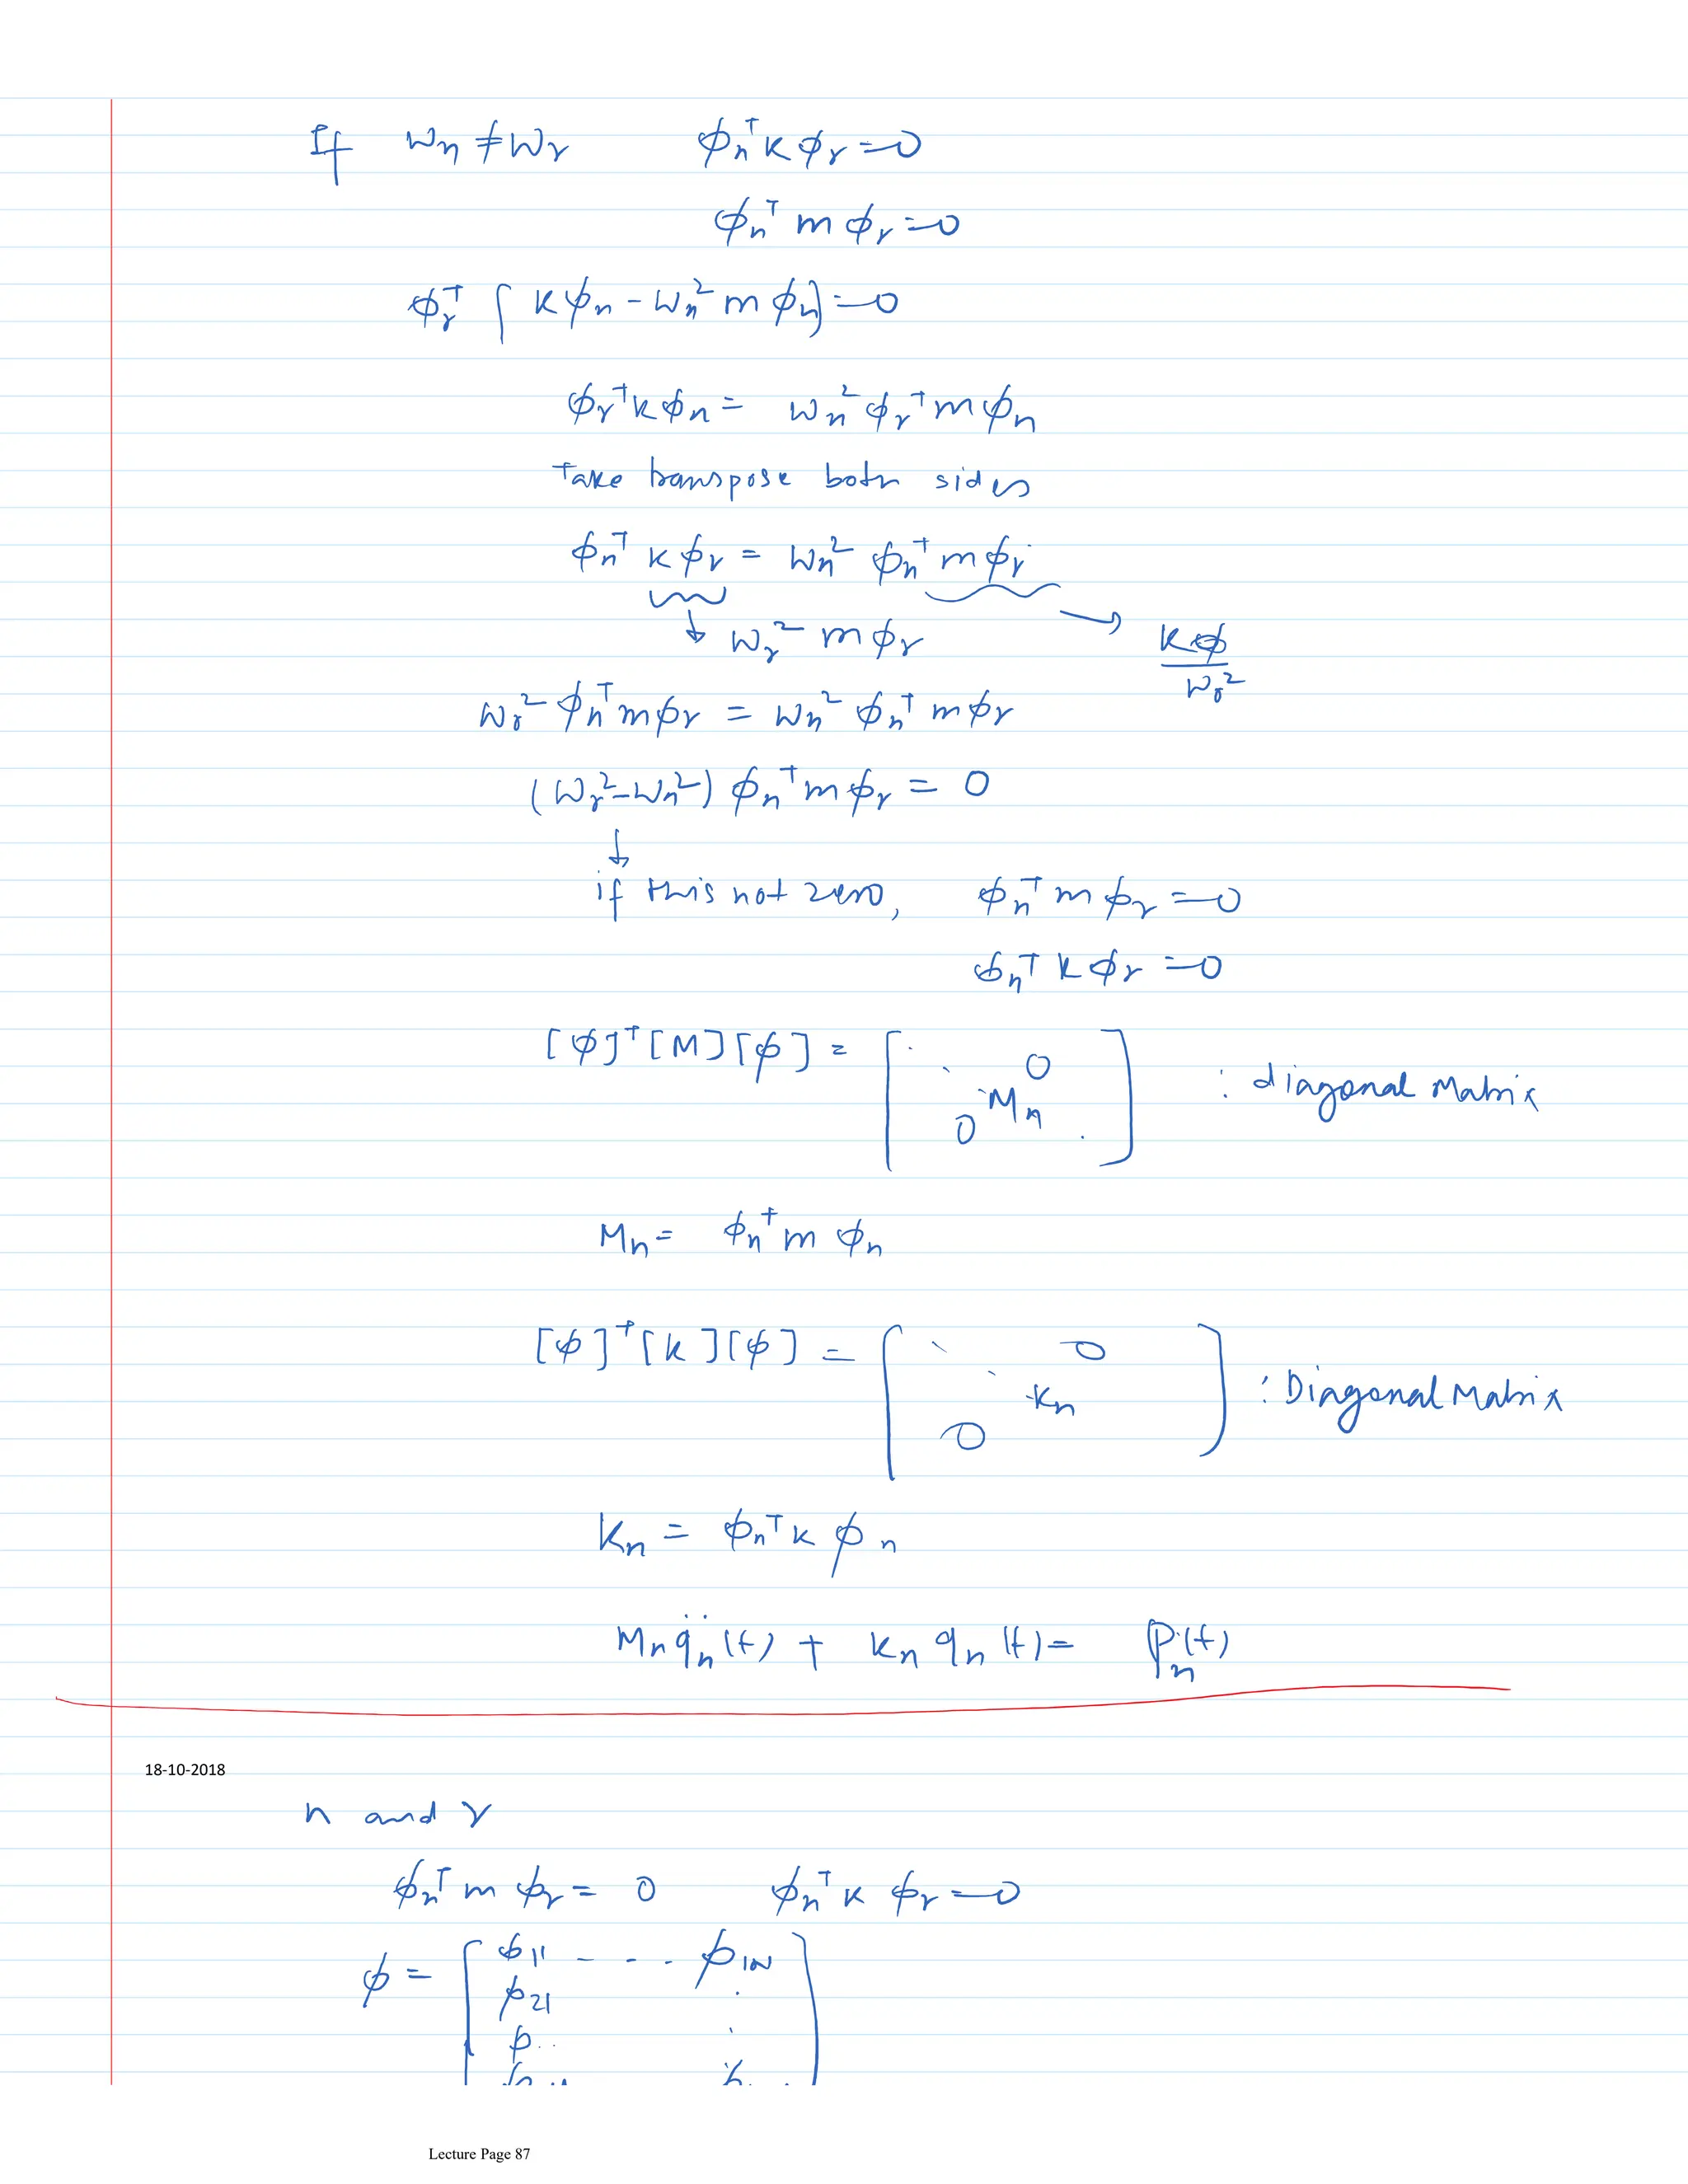 If ωn ≠ ωr ϕn^T k ϕr = 0
ϕn^T m ϕr = 0
ϕr^T [ k ϕn - ωn^2 m ϕn ] = 0
ϕr^T k ϕn = ωn^2 ϕr^T m ϕn
Take transpose both sides
ϕn^T k ϕr = ωn^2 ϕn^T m ϕr
↓ ωr^2 m ϕr → kϕ / ωr^2
ωr^2 ϕn^T m ϕr = ωn^2 ϕn^T m ϕr
(ωr^2 - ωn^2) ϕn^T m ϕr = 0
↓
if this not zero, ϕn^T m ϕr = 0
ϕn^T k ϕr = 0
[ϕ]^T [M] [ϕ] = [ ⋱ 0 Mn 0 ⋱ ] : diagonal Matrix
Mn = ϕn^T m ϕn
[ϕ]^T [k] [ϕ] = [ ⋱ 0 kn 0 ] : Diagonal Matrix
Kn = ϕn^T k ϕn
Mn q̈n(t) + kn qn(t) = Pn(t)
18-10-2018
n and r
ϕn^T m ϕr = 0 ϕn^T k ϕr = 0
ϕ = [ ϕ11 - - - ϕ1N
ϕ21 .
ϕ.. .
Lecture Page 87